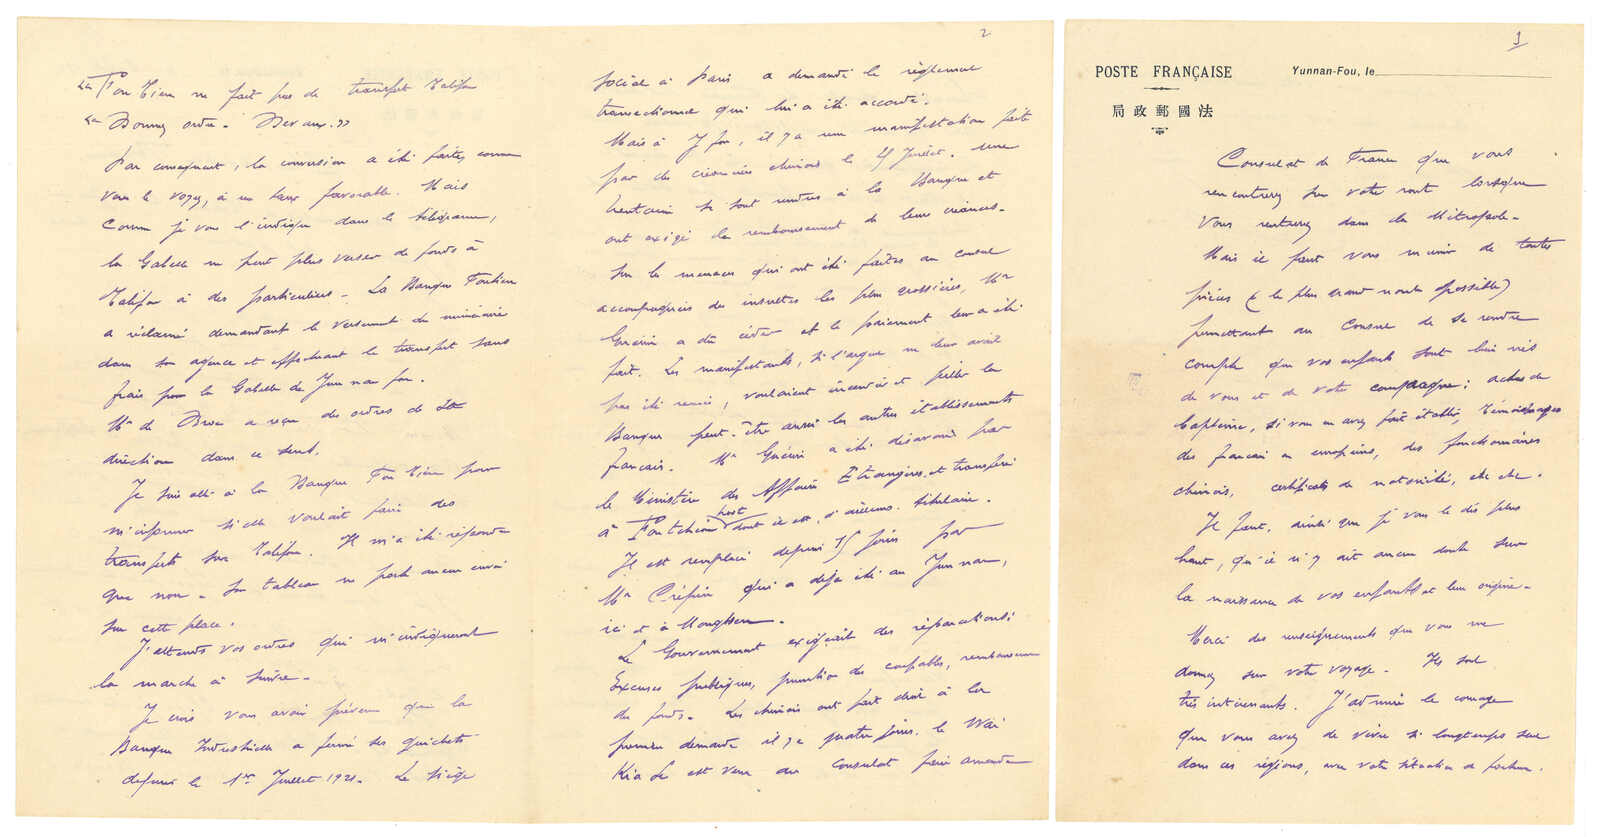 2
« Fou Tien ne fait pas de transfert Talifou
« Donnez ordre. Devaux. »
Par conséquent, la conversion a été faites comme
vous le voyez, à un taux favorable. Mais
comme je vous l'indique dans le télégramme,
la Gabelle ne peut plus verser de fonds à
Talifou à des particuliers. La Banque Foutien
a réclamé demandant le versement du numéraire
dans son agence et effectuant le transfert sans
frais pour la Gabelle de Yunnanfou.
Mr de a reçu des ordres de
direction dans ce sens.
Je suis allé à la Banque Fou Tien pour
m'informer si elle voulait faire des
transferts sur Talifou. Il m'a été répondu
que non. Son tableau ne porte aucun envoi
sur cette place.
J'attends vos ordres qui m'indiqueront
la marche à suivre.
Je crois vous avoir prévenu que la
Banque Industrielle a fermé ses guichets
depuis le 1er Juillet 1921. Le siège
social à Paris a demandé le règlement
transactionnel qui lui a été accordé.
Mais à Y fou, il y a une manifestation faite
par des créanciers chinois le Juillet. Une
trentaine se sont rendus à la Banque et
ont exigé le remboursement de leurs créances.
Sur les menaces qui ont été faites au consul
accompagnées des insultes les plus grossières, Mr
Guérin a dû céder et le paiement leur a été
fait. Les manifestants, si l'argent ne leur avait
pas été remis, voulaient incendier et piller la
Banque peut-être aussi les autres établissements
français. Mr Guérin a été désavoué par
le Ministère des Affaires Etrangères et transféré
à Pontchéou post dont il est, d'ailleurs, titulaire.
Il est remplacé depuis 15 jours par
Mr Crépin qui a déjà été au Yunnan,
ici et à Mongtseu.
Le Gouvernement exigerait des réparations :
Excuses publiques, punition des coupables, remboursement
des fonds. Les chinois ont fait droit à la
première demande il y a quatre jours. Le Wai
Kia Se est venu au consulat faire amende
1
POSTE FRANÇAISE
Yunnan-Fou, le
局政郵國法
Consulat de France que vous
rencontrerez sur votre route lorsque
vous rentrerez dans la Métropole.
Mais il faut vous munir de toutes
pièces (& le plus grand nombre possible)
permettant au Consul de se rendre
compte que vos enfants sont bien nés
de vous et de votre compagne : actes de
baptême, si vous en avez fait établir, témoignages
des français ou européens, des fonctionnaires
chinois, certificats de notoriété, etc etc.
Il faut, ainsi que je vous le dis plus
haut, qu'il n'y ait aucun doute sur
la naissance de vos enfants et leur origine.
Merci des renseignements que vous me
donnez sur votre voyage. Ils sont
très intéressants. J'admire le courage
que vous avez de vivre si longtemps seul
dans ces régions, avec votre situation de fortune.